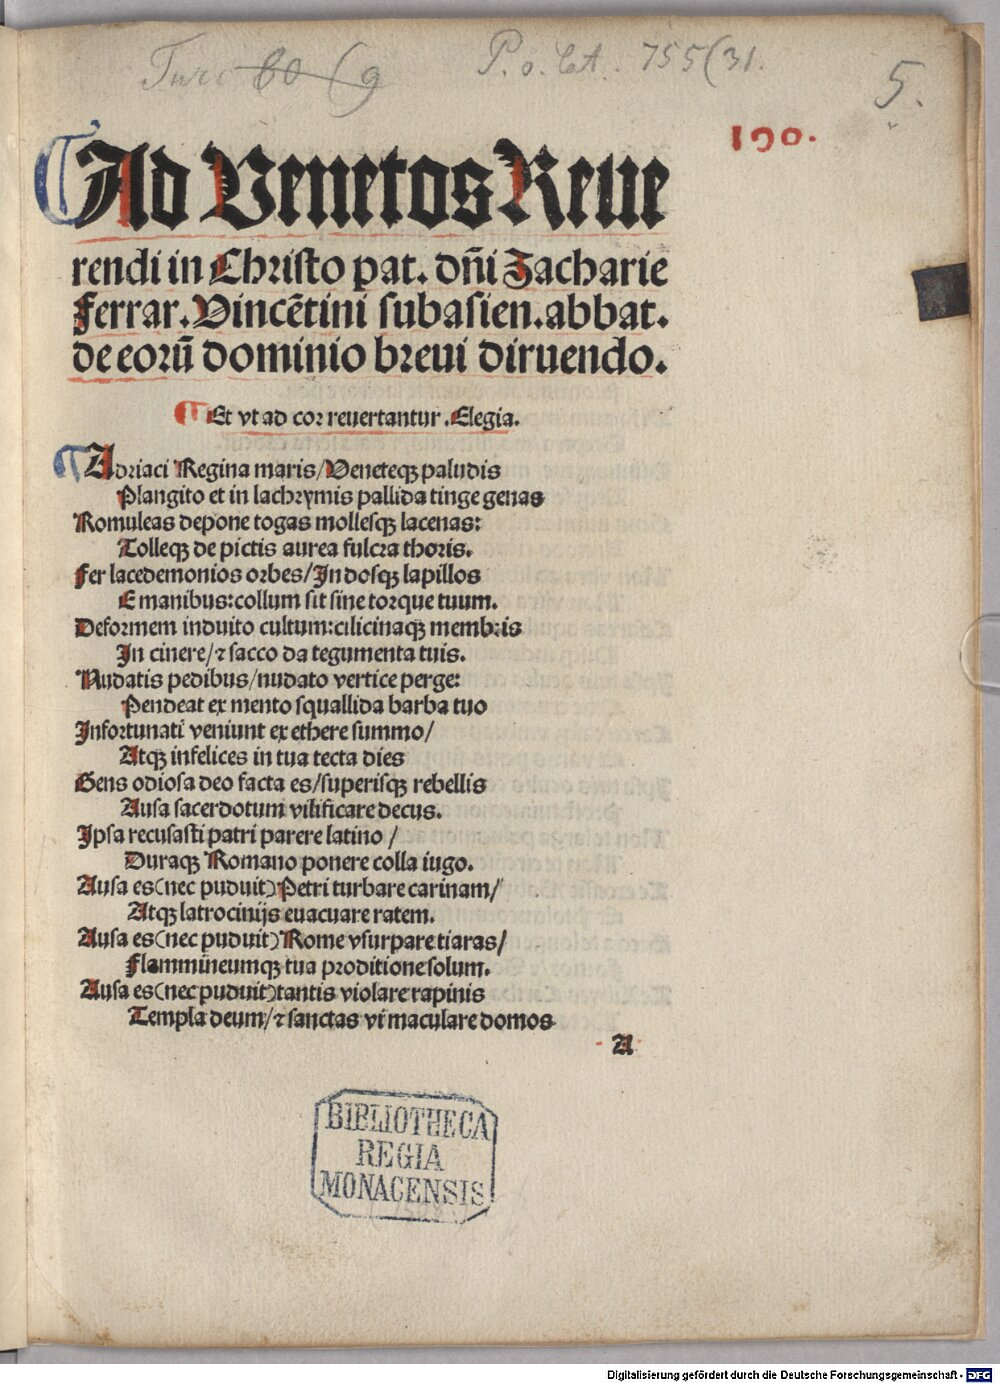 P. o. lat. 755(31.
5.
190.
¶Ad Venetos Reue
rendi in Christo pat. dñi Zacharie
Ferrar. Vincẽtini subasien. abbat.
de eorũ dominio breui diruendo.
¶Et vt ad cor reuertantur. Elegia.
¶Adriaci Regina maris/Veneteqꝫ paludis
Plangito et in lachrymis pallida tinge genas
Romuleas depone togas mollesqꝫ lacenas:
Tolleqꝫ de pictis aurea fulcra thoris.
Fer lacedemonios orbes/Indosqꝫ lapillos
E manibus: collum sit sine torque tuum.
Deformem induito cultum: cilicinaqꝫ membris
In cinere/⁊ sacco da tegumenta tuis.
Nudatis pedibus/nudato vertice perge:
Pendeat ex mento squallida barba tuo
Infortunati veniunt ex ethere summo/
Atqꝫ infelices in tua tecta dies
Gens odiosa deo facta es/superisqꝫ rebellis
Ausa sacerdotum vilificare decus.
Ipsa recusasti patri parere latino/
Duraqꝫ Romano ponere colla iugo.
Ausa es(nec puduit)Petri turbare carinam/
Atqꝫ latrocinijs euacuare ratem.
Ausa es(nec puduit)Rome vsurpare tiaras/
Flammineumqꝫ tua proditione solum.
Ausa es(nec puduit)tantis violare rapinis
Templa deum/⁊ sanctas vi maculare domos
A
BIBLIOTHECA
REGIA
MONACENSIS
Digitalisierung gefördert durch die Deutsche Forschungsgemeinschaft - DFG